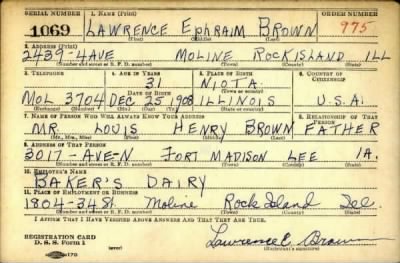 SERIAL NUMBER 1. NAME (Print) ORDER NUMBER
1069 LAWRENCE EPHRAIM BROWN 975
(First) (Middle) (Last)
2. ADDRESS (Print)
2439-4 AVE MOLINE ROCK ISLAND ILL
(Number and street or R. F. D. number) (Town) (County) (State)
3. TELEPHONE 4. AGE IN YEARS 5. PLACE OF BIRTH 6. COUNTRY OF CITIZENSHIP
31 NIOTA
DATE OF BIRTH
MOL 3704 DEC 25 1908 ILLINOIS U.S.A.
(Exchange) (Number) (Mo.) (Day) (Yr.) (State or country)
7. NAME OF PERSON WHO WILL ALWAYS KNOW YOUR ADDRESS 8. RELATIONSHIP OF THAT PERSON
MR. LOUIS HENRY BROWN FATHER
(Mr., Mrs., Miss) (First) (Middle) (Last)
9. ADDRESS OF THAT PERSON
3017-AVE-N FORT MADISON LEE IA.
(Number and street or R. F. D. number) (Town) (County) (State)
10. EMPLOYER'S NAME
BAKER'S DAIRY
11. PLACE OF EMPLOYMENT OR BUSINESS
1804-34 St. Moline Rock Island Ill.
(Number and street or R. F. D. number) (Town) (County) (State)
I AFFIRM THAT I HAVE VERIFIED ABOVE ANSWERS AND THAT THEY ARE TRUE.
REGISTRATION CARD
D. S. S. Form 1 Lawrence E Brown
(Registrant's signature)